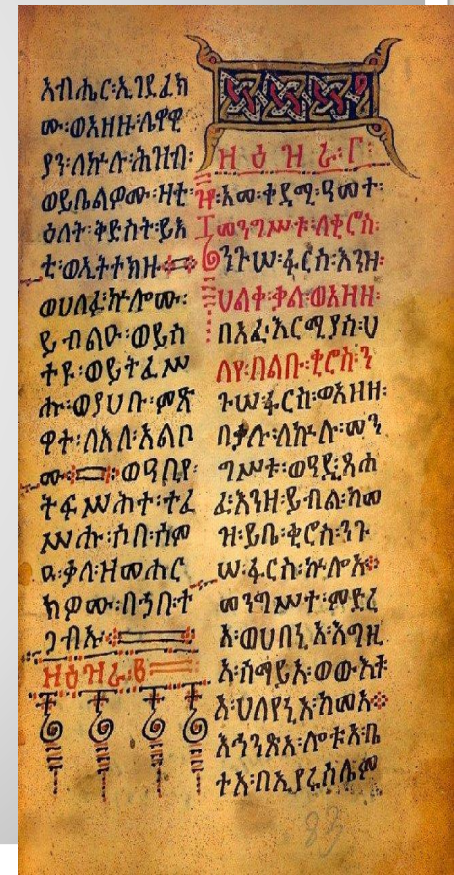 እብሔር፡ኢገደፈክ
ሙ፡ወአዘዙ፡ሌዋዊ
ያን፡ለኵሉ፡ሕዝብ፡
ወይቤልዎሙ፡ዛቲ
ዕለት፡ቅድስት፡ይእ
ቲ፡ወኢትተክዙ
ወሀለፉ፡ኵሎሙ፡
ይብልዑ፡ወይስ
ተዩ፡ወይትፈሥ
ሑ፡ወያሀቡ፡ምጽ
ዋተ፡ለእለ፡አልቦ
ሙ፡ወዓቢየ፡
ትፍሥሕተ፡ተፈ
ሥሑ፡ሶበ፡ሰም
ዑ፡ቃለ፡ዘመሐር
ክዎሙ፡በኀበ፡ተ
ጋብኡ
ዘዕዝራ፡፪
ዘዕዝራ፡፫፡
አመ፡ቀደሚ፡ዓመተ፡
መንግሥቱ፡ለቂሮስ፡
ንጉሠ፡ፋርስ፡እንዘ፡
ሀልቀ፡ቃል፡ወአዘዘ፡
በአፈ፡ኤርሚያስ፡ሀ
ለየ፡በልቡ፡ቂሮስ፡ን
ጉሠ፡ፋርስ፡ወአዘዘ፡
በቃሉ፡ለኵሉ፡መን
ግሥቱ፡ወዓዲ፡ጸሐ
ፈ፡እንዘ፡ይብል፡ከመ
ዝ፡ይቤ፡ቂሮስ፡ንጉ
ሠ፡ፋርስ፡ኵሎአ
መንግሥተ፡ምድረ
አ፡ወሀበኒአ፡እግዚ
አ፡ሰማይአ፡ወውእቱ
አ፡ሀለየኒአ፡ከመአ
እኅንጽአ፡ሎቱአ፡ቤ
ተአ፡በኢየሩሳሌም
83